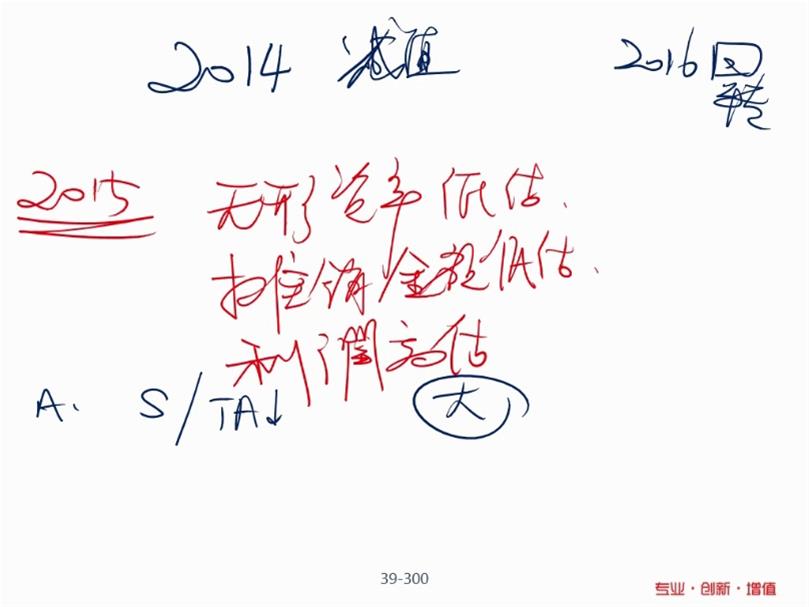 2014 减值 2016 回
转
2015 无形资产低估.
摊销金额低估.
利润高估
A. S/TA↓ 大
39-300
专业·创新·增值